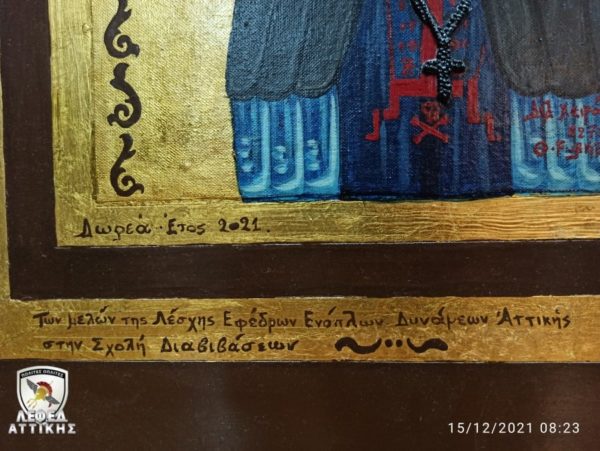 Διά χειρός
Δωρεά · Έτος 2021.
Των μελών της Λέσχης Εφέδρων Ενόπλων Δυνάμεων Αττικής
στην Σχολή Διαβιβάσεων
ΠΟΛΙΤΕΣ ΟΠΛΙΤΕΣ
ΛΕΦΕΔ
ΑΤΤΙΚΗΣ
15/12/2021 08:23